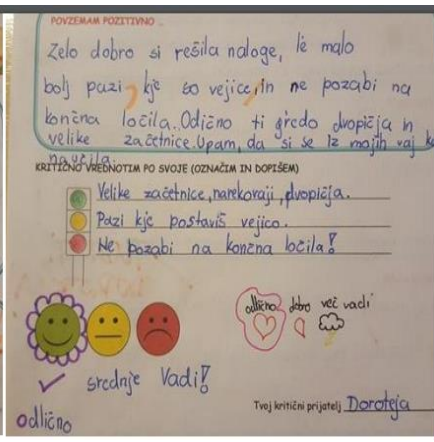 POVZEMAM POZITIVNO ...
Zelo dobro si rešila naloge, le malo
bolj pazi, kje so vejice, in ne pozabi na
končna ločila. Odično ti gredo dvopičja in
velike začetnice. Upam, da si se iz mojih vaj
naučila.
KRITIČNO VREDNOTIM PO SVOJE (OZNAČIM IN DOPIŠEM)
Velike začetnice, narekovaji, dvopičja.
Pazi kje postaviš vejico.
Ne pozabi na končna ločila!
odlično dobro več vadi
srednje Vadi!
odlično
Tvoj kritični prijatelj Doroteja